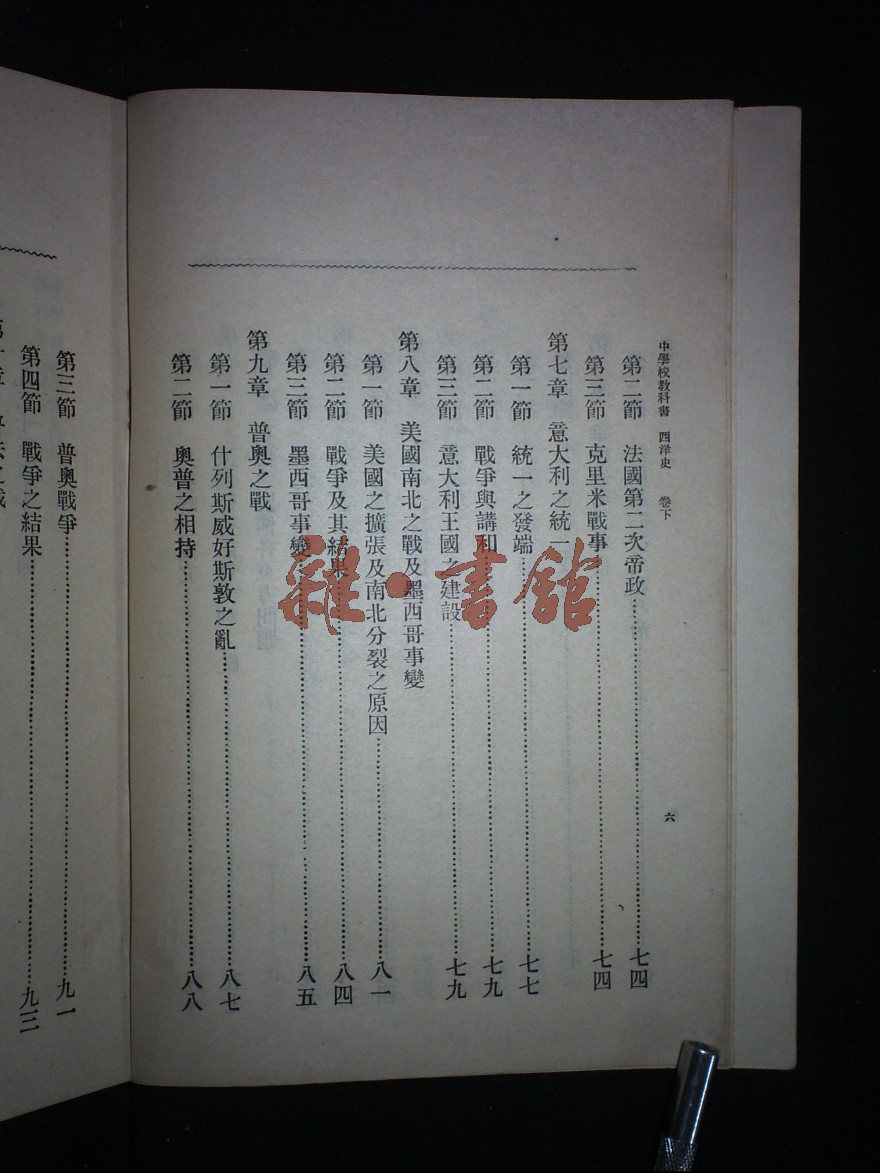 中學校教科書 西洋史 卷下 六
第二節 法國第二次帝政……七四
第三節 克里米戰事……七四
第七章 意大利之統一
第一節 統一之發端……七七
第二節 戰爭與講和……七九
第三節 意大利王國之建設……七九
第八章 美國南北之戰及墨西哥事變
第一節 美國之擴張及南北分裂之原因……八一
第二節 戰爭及其結果……八四
第三節 墨西哥事變……八五
第九章 普奧之戰
第一節 什列斯威好斯敦之亂……八七
第二節 奧普之相持……八八
第三節 普奧戰爭……九一
第四節 戰爭之結果……九三
雜·書館